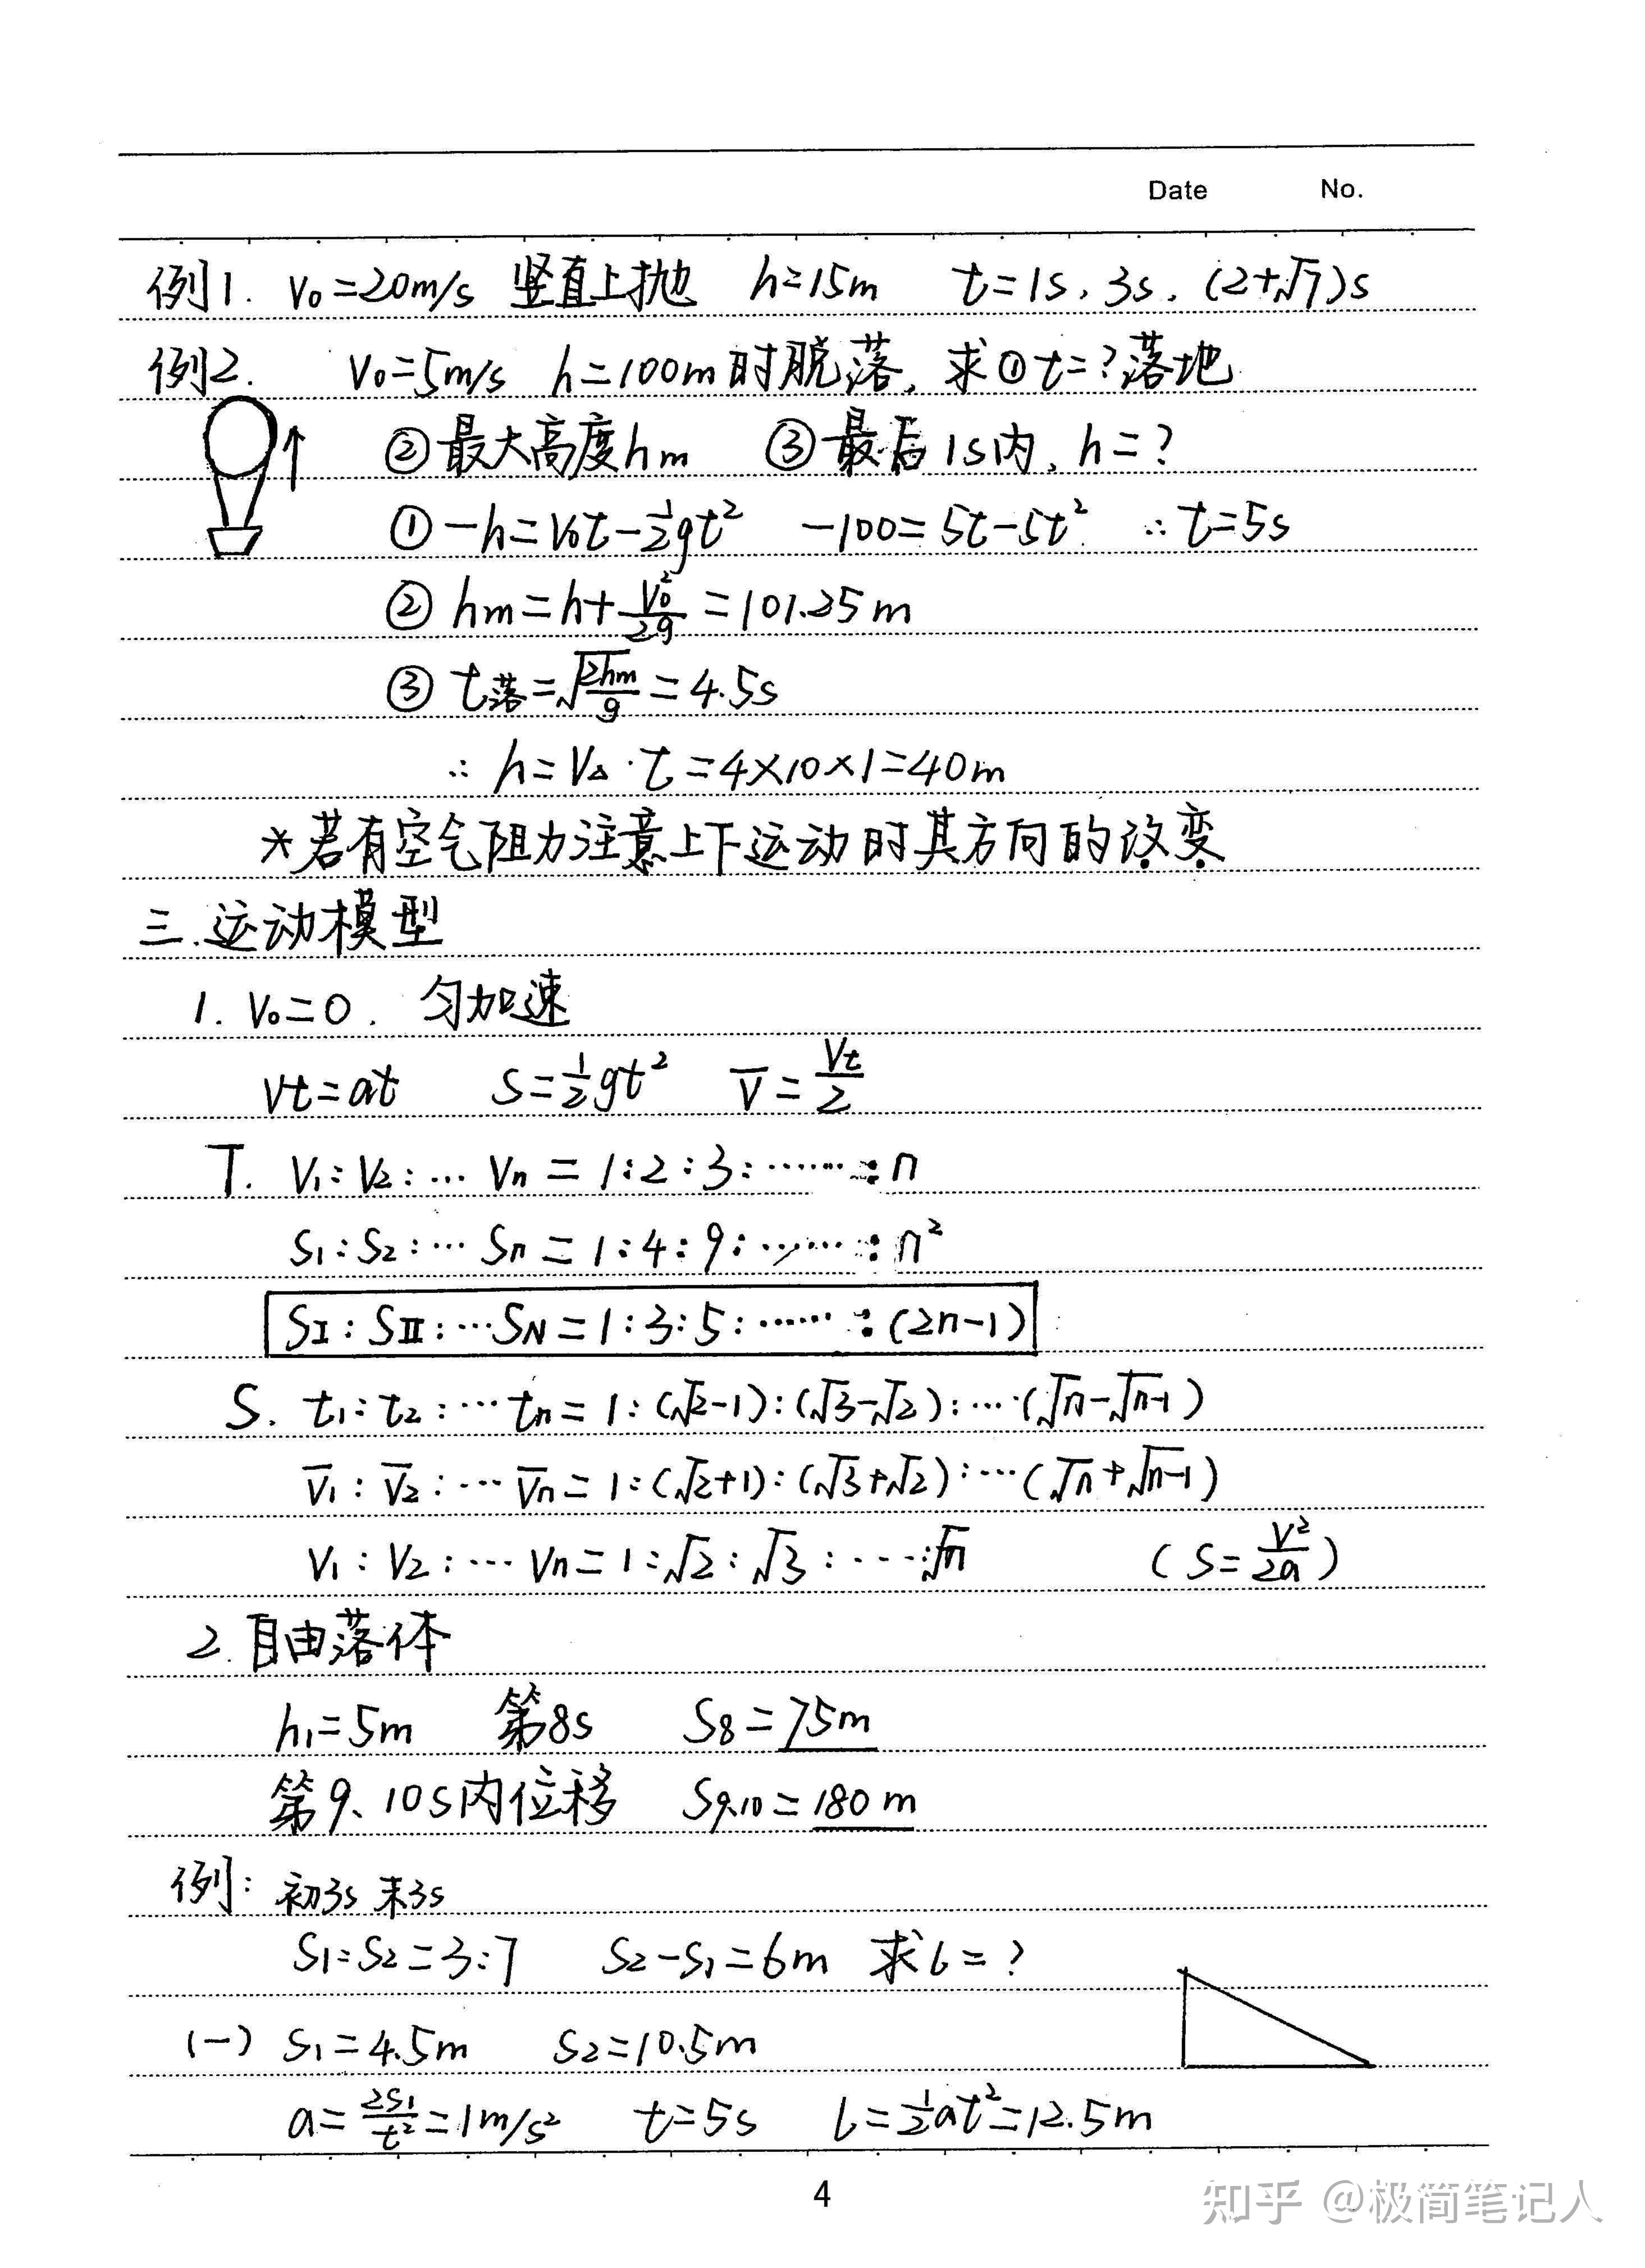 Date No.
例1. V₀=20m/s 竖直上抛 h=15m t=1s, 3s, (2+√7)s
例2. V₀=5m/s h=100m时脱落, 求①t=?落地
②最大高度hm ③最后1s内, h=?
①-h=V₀t-½gt² -100=5t-5t² ∴t=5s
②hm=h+V₀²/2g=101.25m
③t落=√(2hm/g)=4.5s
∴h=V₄·t=4×10×1=40m
*若有空气阻力注意上下运动时其方向的改变
三.运动模型
1. V₀=0. 匀加速
Vt=at S=½gt² V̅=Vt/2
T. V₁:V₂:…Vn=1:2:3:……:n
S₁:S₂:…Sn=1:4:9:……:n²
SⅠ:SⅡ:…SN=1:3:5:……:(2n-1)
S. t₁:t₂:…tn=1:(√2-1):(√3-√2):…(√n-√n-1)
V̅₁:V̅₂:…V̅n=1:(√2+1):(√3+√2):…(√n+√n-1)
V₁:V₂:…Vn=1:√2:√3:…:√n (S=V²/2a)
2.自由落体
h₁=5m 第8s S₈=75m
第9、10s内位移 S9.10=180m
例: 初3s 末3s
S₁:S₂=3:7 S₂-S₁=6m 求l=?
(一) S₁=4.5m S₂=10.5m
a=2S₁/t²=1m/s² t=5s l=½at²=12.5m
4
知乎 @极简笔记人